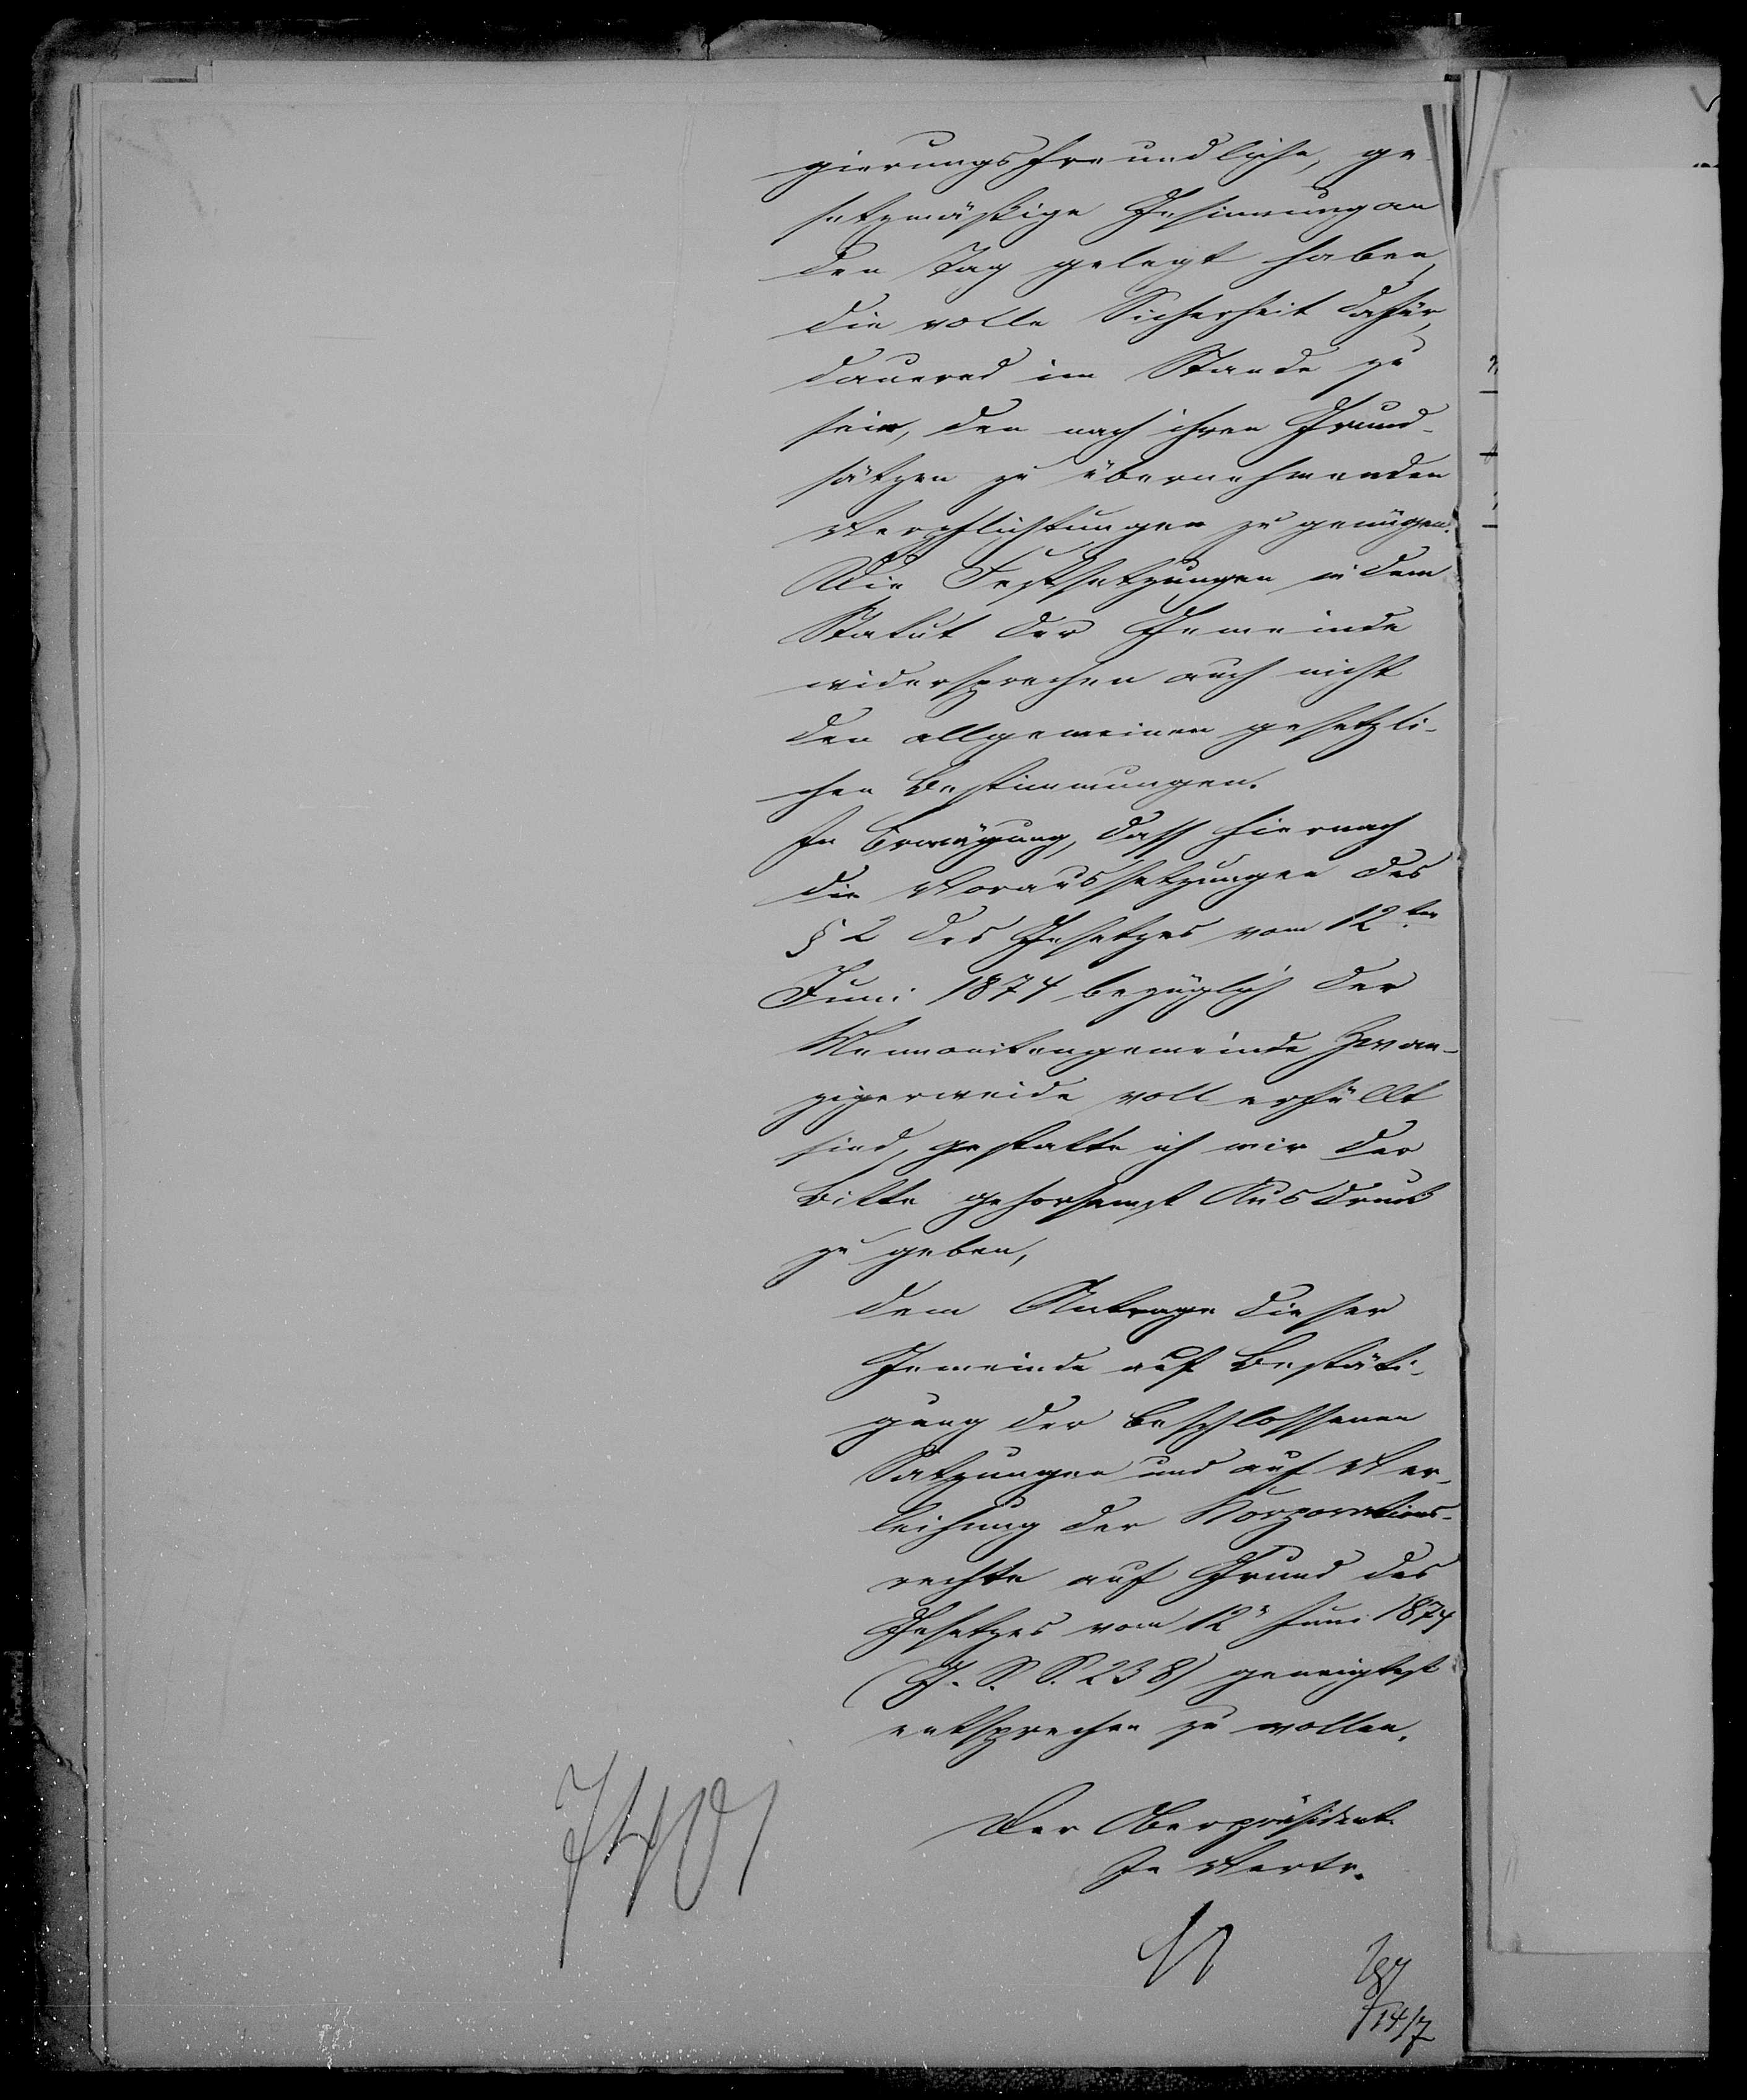 gierungsfreundliche, ge-
setzmäßige Gesinnung an
den Tag gelegt haben,
die volle Sicherheit dafür,
dauernd im Stande zu
sein, den nach ihren Grund-
sätzen zu übernehmenden
Verpflichtungen zu genügen.
Die Festsetzungen in dem
Statut der Gemeinde
widersprechen auch nicht
den allgemeinen gesetzli-
chen Bestimmungen.
In Erwägung, dass hiernach
die Voraussetzungen des
§ 2 des Gesetzes vom 12ten
Juni 1874 bezüglich der
Mennonitengemeinde Zwan-
zigerweide voll erfüllt
sind, gestatte ich mir der
Bitte gehorsamst Ausdruck
zu geben,
dem Antrage dieser
Gemeinde auf Bestäti-
gung der beschlossenen
Satzungen und auf Ver-
leihung der Korporations-
rechte auf Grund des
Gesetzes vom 12 Juni 1874
(G. S. S. 238) geneigtest
entsprechen zu wollen.
Der Oberpräsident.
In Vertr.
14/7